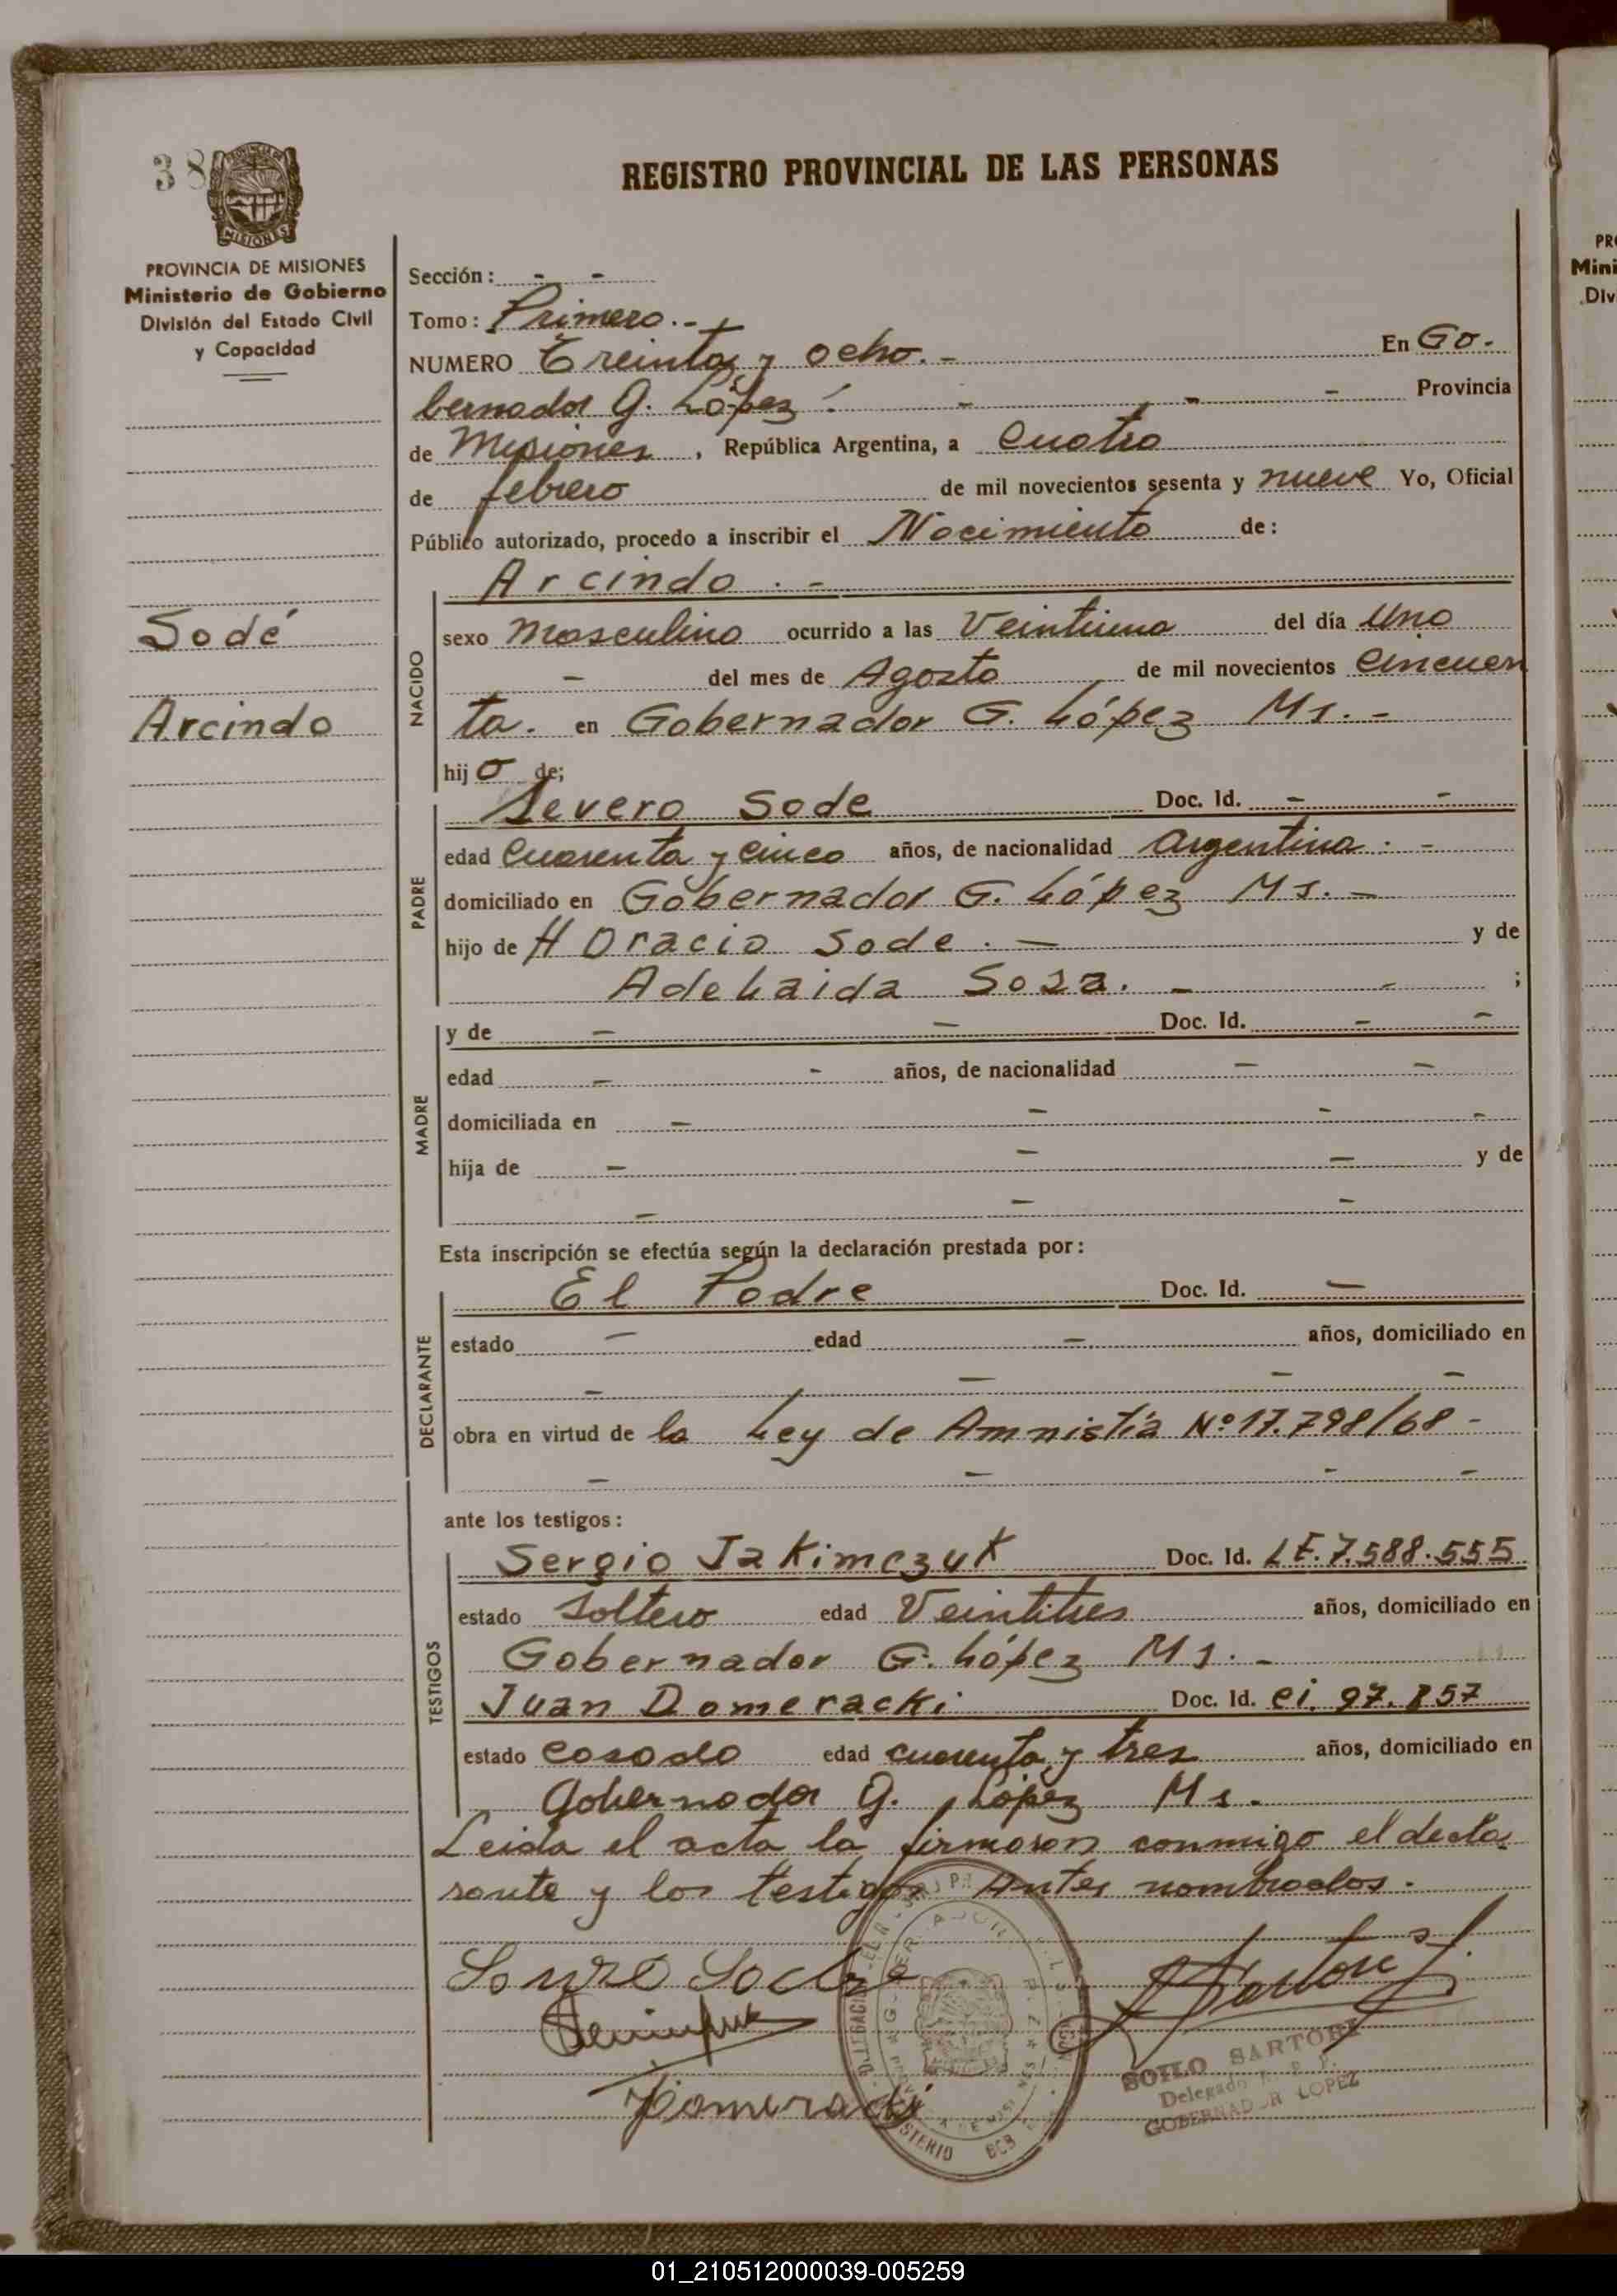 38
REGISTRO PROVINCIAL DE LAS PERSONAS
MISIONES
PROVINCIA DE MISIONES
Ministerio de Gobierno
División del Estado Civil
y Capacidad
Sodé
Arcindo
Sección: - -
Tomo: Primero.-
NUMERO Treinta y ocho.- En Go-
bernador G. López. - - - Provincia
de Misiones, República Argentina, a Cuatro
de febrero de mil novecientos sesenta y nueve Yo, Oficial
Público autorizado, procedo a inscribir el Nacimiento de:
NACIDO
Arcindo.-
sexo masculino ocurrido a las Veintiuna del día Uno
- del mes de Agosto de mil novecientos Cincuen
ta. en Gobernador G. López Ms.-
hijo de;
PADRE
Severo Sode Doc. Id. - -
edad Cuarenta y Cinco años, de nacionalidad Argentina.-
domiciliado en Gobernador G. López Ms.-
hijo de Horacio Sode.- y de
Adelaida Sosa. - - ;
MADRE
y de - - Doc. Id. - -
edad - - años, de nacionalidad - -
domiciliada en - - - -
hija de - - - y de
- - -
Esta inscripción se efectúa según la declaración prestada por:
DECLARANTE
El Padre Doc. Id. -
estado - edad - años, domiciliado en
- - - -
obra en virtud de la Ley de Amnistía Nº 17.798/68-
- - - -
ante los testigos:
TESTIGOS
Sergio Jakimczuk Doc. Id. LE. 7.588.555
estado Soltero edad Veintitres años, domiciliado en
Gobernador G. López Ms.-
Juan Domeracki Doc. Id. ci. 97.857
estado casado edad cuarenta y tres años, domiciliado en
Gobernador G. López Ms.
Leida el acta la firmaron conmigo el decla
rante y los testigos Antes nombrados.
Domeracki
SOILO SARTORI
Delegado
GOBERNADOR LOPEZ
01_210512000039-005259